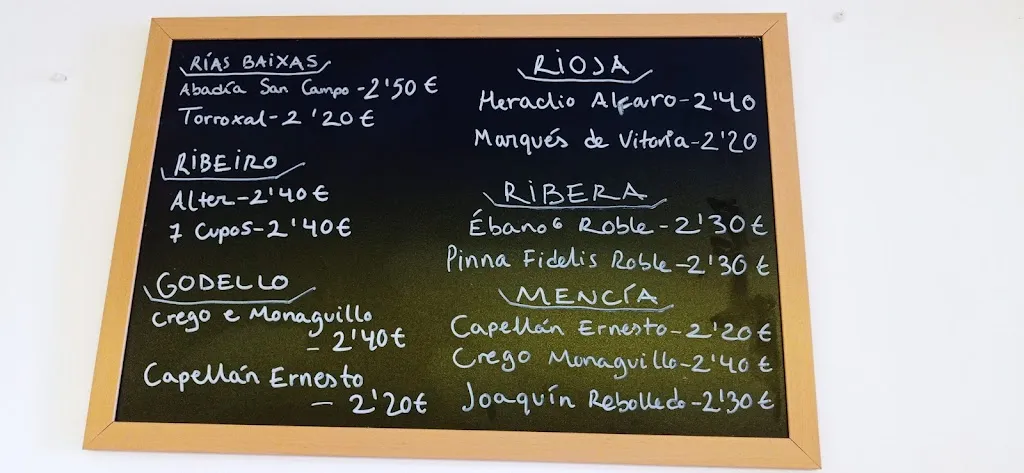 RÍAS BAIXAS
Abadía San Campo - 2'50 €
Torroxal - 2'20 €
RIBEIRO
Alter - 2'40 €
7 Cupos - 2'40 €
GODELLO
Crego e Monaguillo
- 2'40 €
Capellán Ernesto
- 2'20 €
RIOJA
Heraclio Alfaro - 2'40
Marqués de Vitoria - 2'20
RIBERA
Ébano 6 Roble - 2'30 €
Pinna Fidelis Roble - 2'30 €
MENCÍA
Capellán Ernesto - 2'20 €
Crego Monaguillo - 2'40 €
Joaquín Rebolledo - 2'30 €